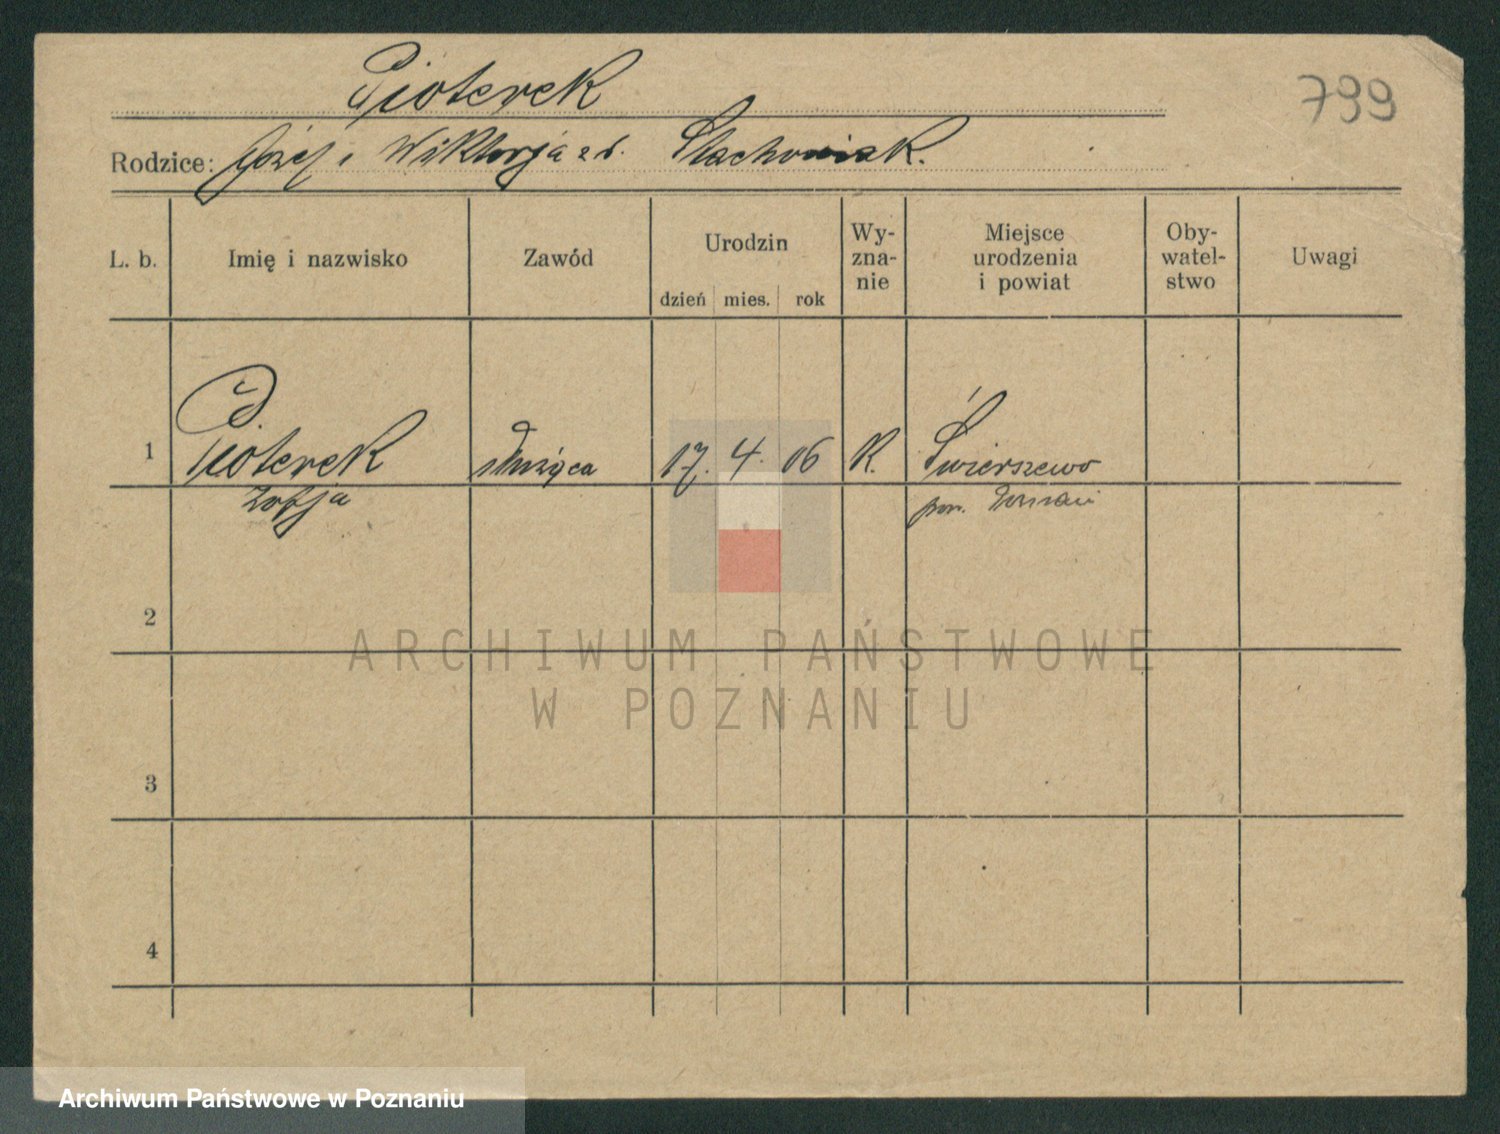 Pioterek
799
Rodzice: Józef i Wiktorja z d. Stachowiak.
L. b. Imię i nazwisko Zawód Urodzin dzień mies. rok Wy-zna-nie Miejsce urodzenia i powiat Oby-watel-stwo Uwagi
1 Pioterek służąca 17. 4. 06 R. Świerszewo
Zofja pow. Poznań
2
ARCHIWUM PAŃSTWOWE
W POZNANIU
3
4
Archiwum Państwowe w Poznaniu